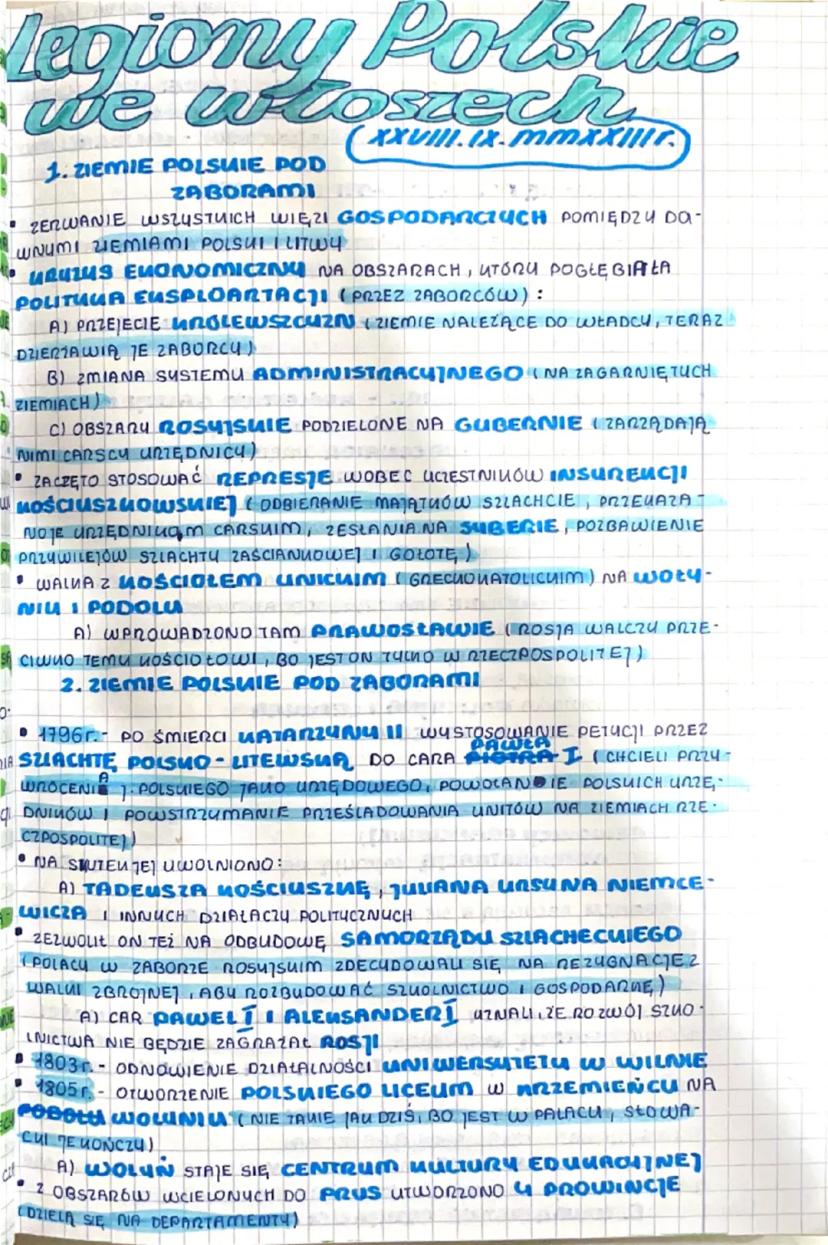 Legiony Polskie
we włoszech
XXVIII.IX.MMXXIII r.
1. ZIEMIE POLSKIE POD
ZABORAMI
• ZERWANIE WSZYSTKICH WIĘZI GOSPODARCZYCH POMIĘDZY DA-
WNYMI ZIEMIAMI POLSKI I LITWY
• KRYZYS EKONOMICZNY NA OBSZARACH, KTÓRY POGŁĘBIAŁA
POLITYKA EKSPLOARTACJI (PRZEZ ZABORCÓW):
A) PRZEJĘCIE KRÓLEWSZCZYZN (ZIEMIE NALEŻĄCE DO WŁADCY, TERAZ
DZIERŻAWIĄ JE ZABORCY)
B) ZMIANA SYSTEMU ADMINISTRACYJNEGO (NA ZAGARNIĘTYCH
ZIEMIACH)
C) OBSZARY ROSYJSKIE PODZIELONE NA GUBERNIE (ZARZĄDAJĄ
NIMI CARSCY URZĘDNICY)
• ZACZĘTO STOSOWAĆ REPRESJE WOBEC UCZESTNIKÓW INSUREKCJI
KOŚCIUSZKOWSKIEJ (ODBIERANIE MAJĄTKÓW SZLACHCIE, PRZEKAZA-
NO JE URZĘDNIKOM CARSKIM, ZESŁANIA NA SYBERIE, POZBAWIENIE
PRZYWILEJÓW SZLACHTY ZAŚCIANKOWEJ I GOŁOTĘ)
• WALKA Z KOŚCIOŁEM UNICKIM (GRECKOKATOLICKIM) NA WOŁY-
NIU I PODOLU
A) WPROWADZONO TAM PRAWOSŁAWIE (ROSJA WALCZY PRZE-
CIWKO TEMU KOŚCIOŁOWI, BO JEST ON TYLKO W RZECZPOSPOLITEJ)
2. ZIEMIE POLSKIE POD ZABORAMI
• 1796r. - PO ŚMIERCI KATARZYNY II WYSTOSOWANIE PETYCJI PRZEZ
SZLACHTĘ POLSKO-LITEWSKĄ DO CARA PAWŁA PIOTRA I (CHCIELI PRZY-
WRÓCENIA J. POLSKIEGO JAKO URZĘDOWEGO, POWOŁANIE POLSKICH URZĘ-
DNIKÓW I POWSTRZYMANIE PRZEŚLADOWANIA UNITÓW NA ZIEMIACH RZE-
CZPOSPOLITEJ)
• NA SKUTEK JEJ UWOLNIONO:
A) TADEUSZA KOŚCIUSZKĘ, JULIANA URSYNA NIEMCE-
WICZA I INNYCH DZIAŁACZY POLITYCZNYCH
• ZEZWOLIŁ ON TEŻ NA ODBUDOWĘ SAMORZĄDU SZLACHECKIEGO
(POLACY W ZABORZE ROSYJSKIM ZDECYDOWALI SIĘ NA REZYGNACJE Z
WALKI ZBROJNEJ, ABY ROZBUDOWAĆ SZKOLNICTWO I GOSPODARKĘ)
A) CAR PAWEŁ I I ALEKSANDER I UZNALI, ŻE ROZWÓJ SZKO-
LNICTWA NIE BĘDZIE ZAGRAŻAŁ ROSJI
• 1803r. - ODNOWIENIE DZIAŁALNOŚCI UNIWERSYTETU W WILNIE
• 1805r. - OTWORZENIE POLSKIEGO LICEUM W KRZEMIEŃCU NA
PODOLU WOŁYNIU (NIE TAKIE JAK DZIŚ, BO JEST W PAŁACU, SŁOWA-
CKI JE KOŃCZY)
A) WOŁYŃ STAJE SIĘ CENTRUM KULTURY EDUKACYJNEJ
• Z OBSZARÓW WCIELONYCH DO PRUS UTWORZONO 4 PROWINCJE
(DZIELĄ SIĘ NA DEPARTAMENTY)